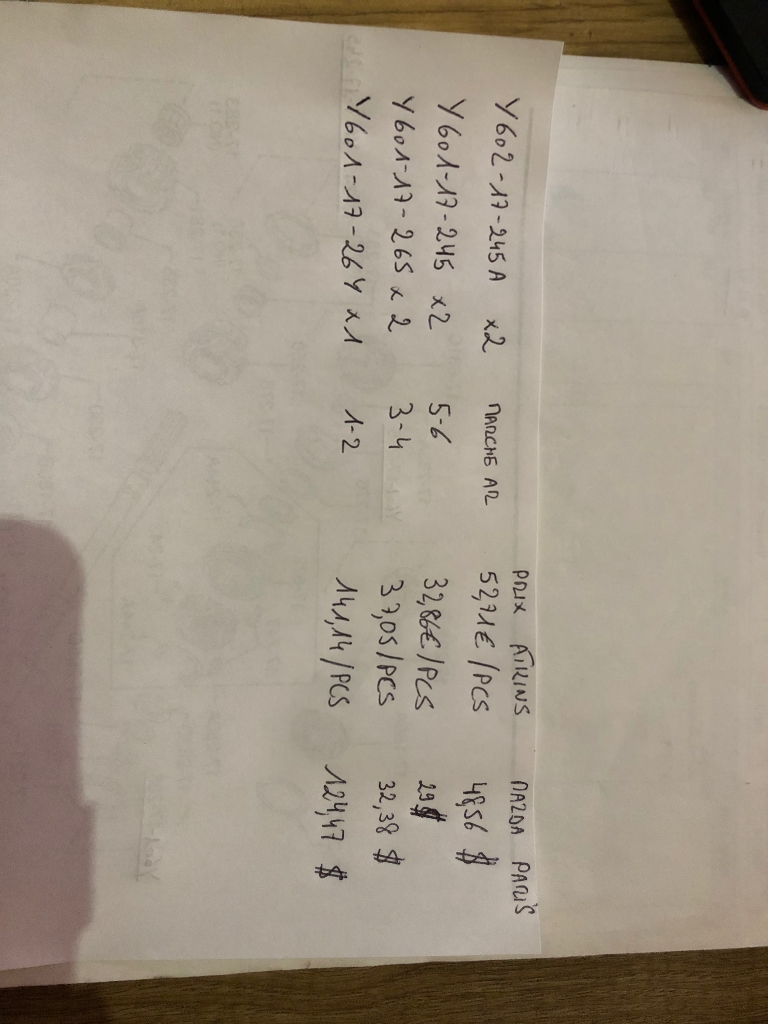 PRIX ATKINS MAZDA PARTS
Y602-17-245A x2 MARCHE AR 52,71€/PCS 48,56 $
Y601-17-245 x2 5-6 32,86€/PCS 29 $
Y601-17-265 x 2 3-4 37,05/PCS 32,38 $
Y601-17-264 x1 1-2 141,14/PCS 124,47 $